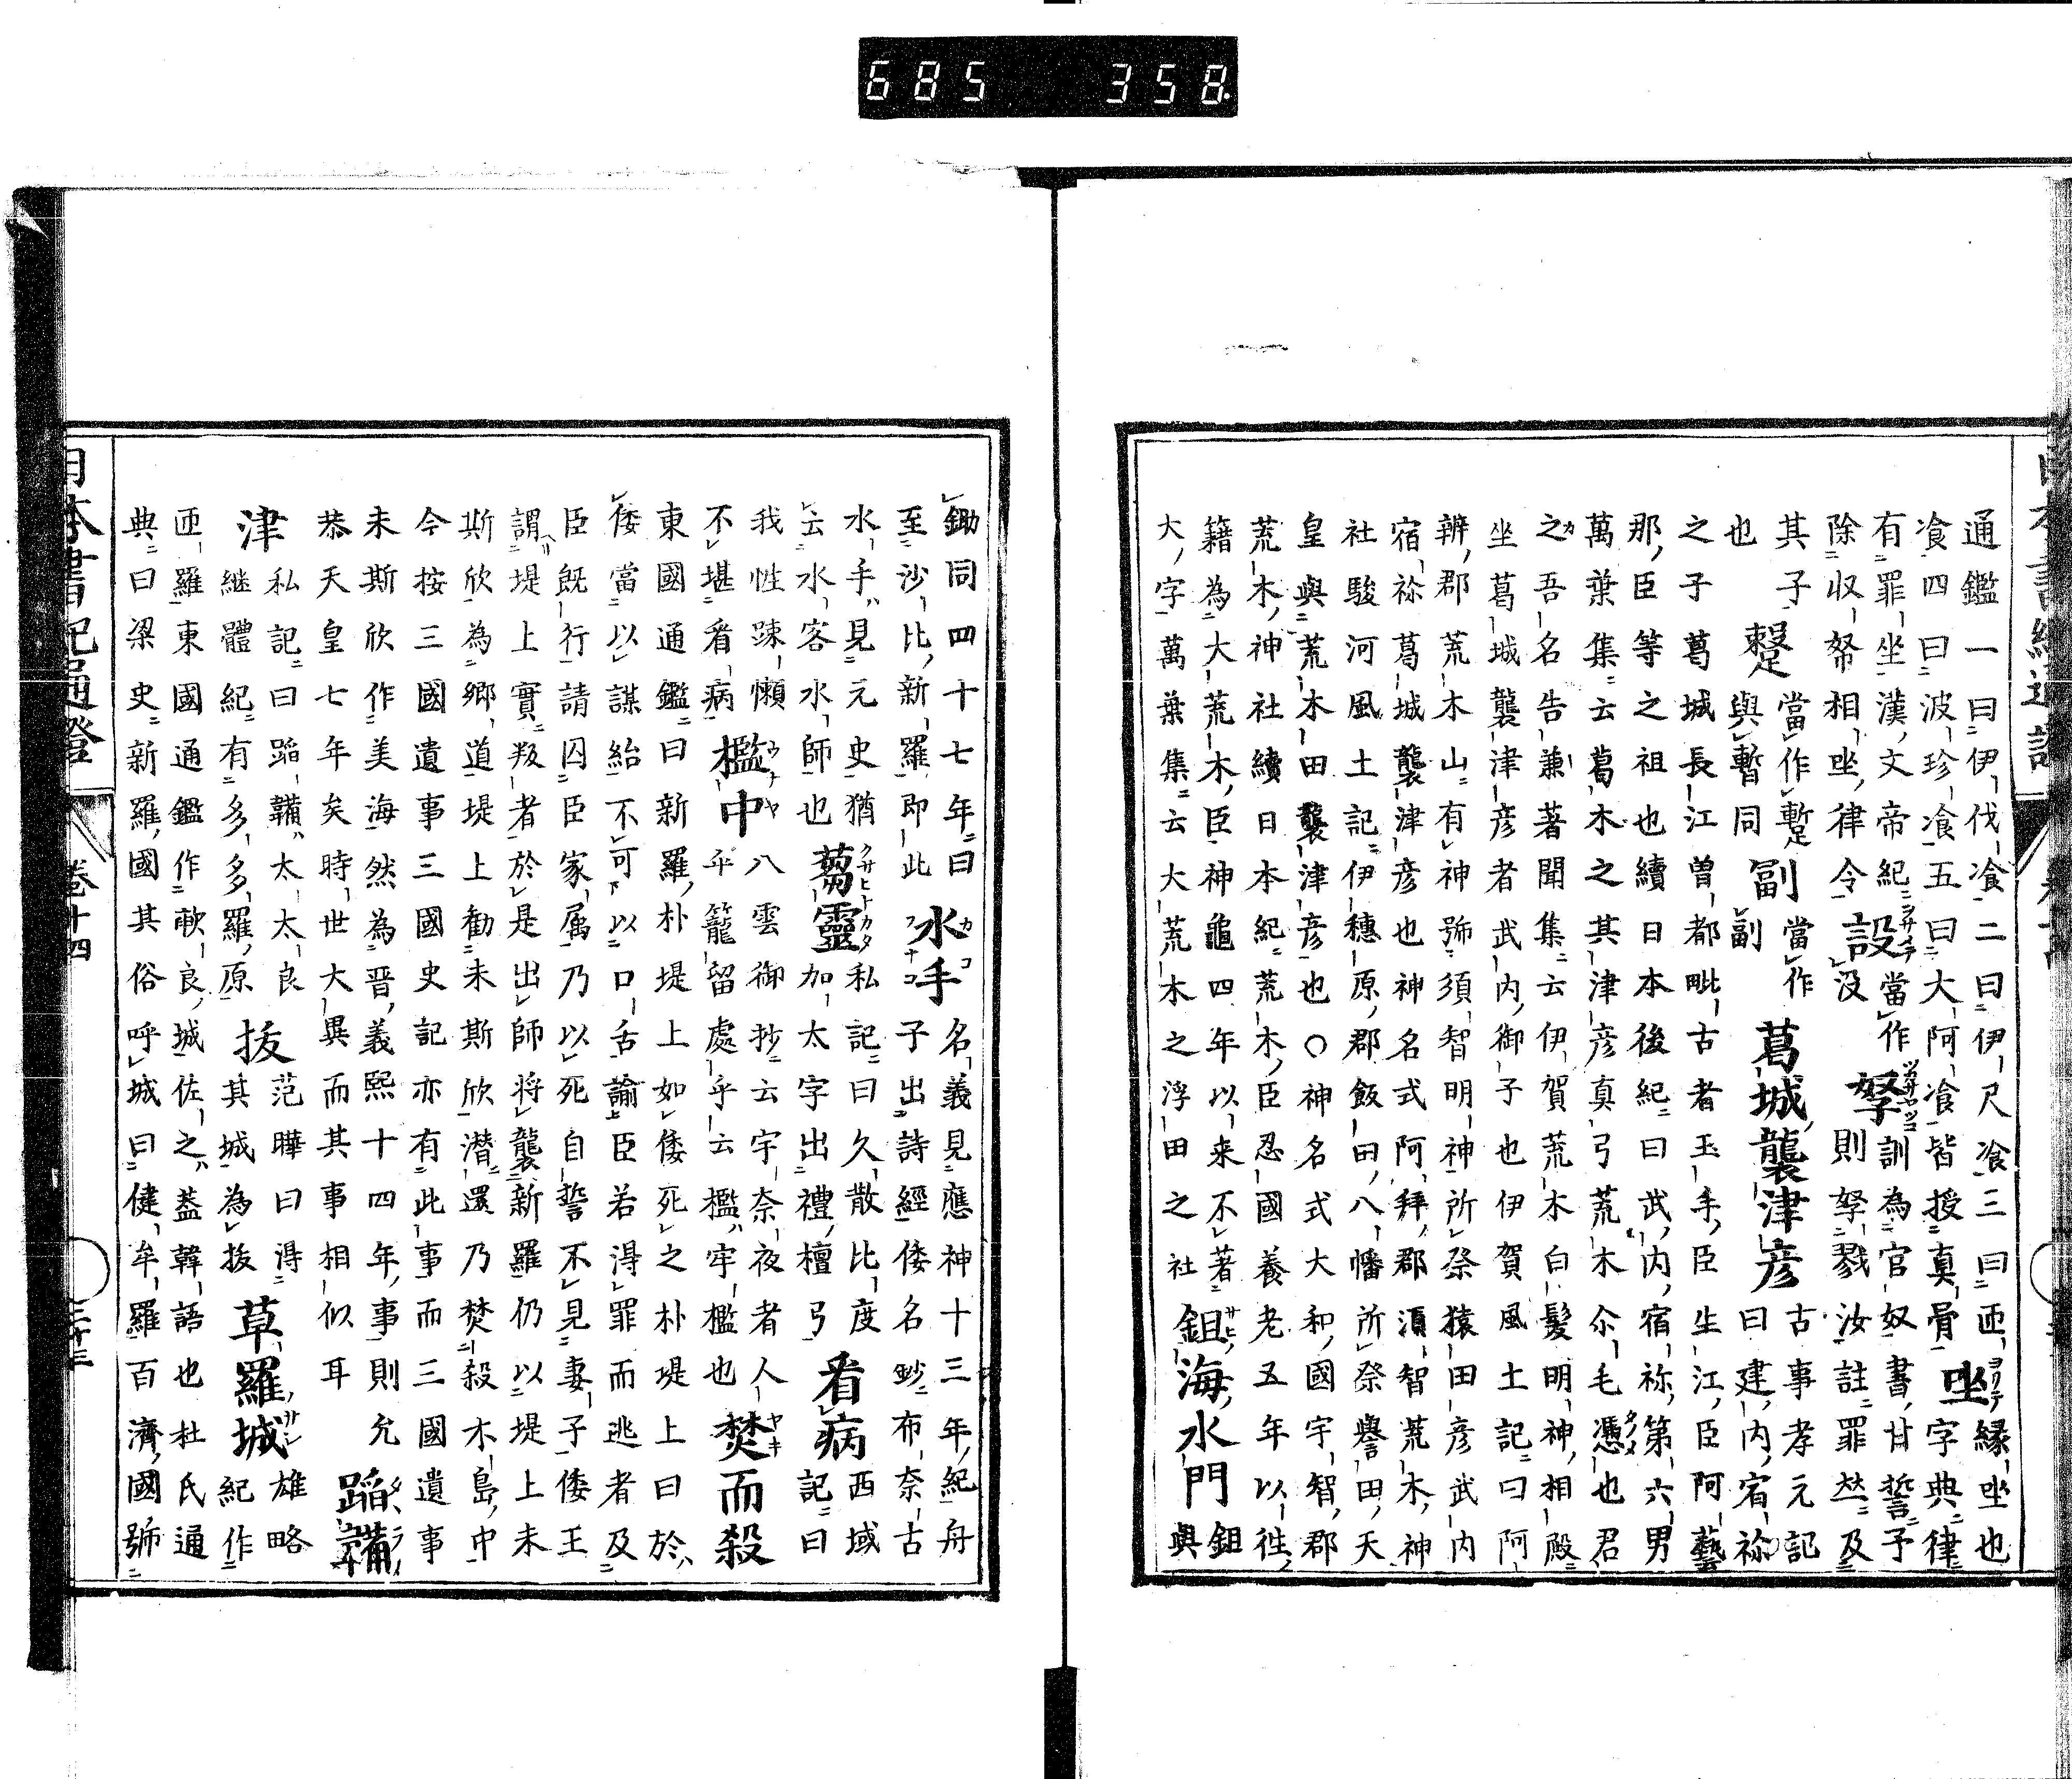 685 358.
通鑑一曰伊伐飡二曰伊尺飡三曰匝縁坐也
飡四曰波珍飡五曰大阿飡皆授真骨坐字典律
有罪坐漢文帝紀當作訓為官奴書甘誓予
除收帑相坐律令設没孥則孥戮汝註罪及
其子當作蹔當作古事孝元記
也蹔與暫同副副葛城襲津彦曰建内宿祢
之子葛城長江曾都毗古者玉手臣生江臣阿藝
那臣等之祖也續日本後紀曰武内宿祢第六男
萬葉集云葛木之其津彦真弓荒木尒毛憑也君
之吾名告兼著聞集云伊賀荒木白髮明神相殿
坐葛城襲津彦者武内御子也伊賀風土記曰阿
辨郡荒木山有神号須智明神所祭猿田彦武内
宿祢葛城襲津彦也神名式阿拜郡須智荒木神
社駿河風土記伊穗原郡飯田八幡所祭譽田天
皇與荒木田襲津彦也○神名式大和國宇智郡
荒木神社續日本紀荒木臣忍國養老五年以徃
籍為大荒木臣神龜四年以来不著鉏海水門鉏
大字萬葉集云大荒木之浮田之社與
鋤同四十七年曰水手名義見應神十三年紀舟
至沙比新羅即此子出詩經倭名鈔布奈古
水手見元史猶蒭靈私記曰久散比度看病西域
云水客水師也加太字出禮檀弓記曰
我性踈懶檻中八雲御抄云宇奈夜者人焚而殺
不堪看病乎籠留處乎云檻牢檻也
東國通鑑曰新羅朴堤上如倭死之朴堤上曰於
倭當以謀紿不可以口舌諭臣若得罪而逃者及
臣既行請囚臣家属乃以死自誓不見妻子倭王
謂堤上實叛者於是出師將襲新羅仍以堤上未
斯欣為鄉道堤上勸未斯欣潛還乃焚殺木島中
今按三國遺事三國史記亦有此事而三國遺事
未斯欣作美海然為晋義熙十四年事則允
恭天皇七年矣時世大異而其事相似耳蹈鞴
津私記曰蹈鞴太太良范曄曰得草羅城雄略
継體紀有多多羅原拔其城為拔紀作
匝羅東國通鑑作歃良城佐之蓋韓語也杜氏通
典曰梁史新羅國其俗呼城曰健牟羅百濟國號
日本書紀通證 卷十四 三十三